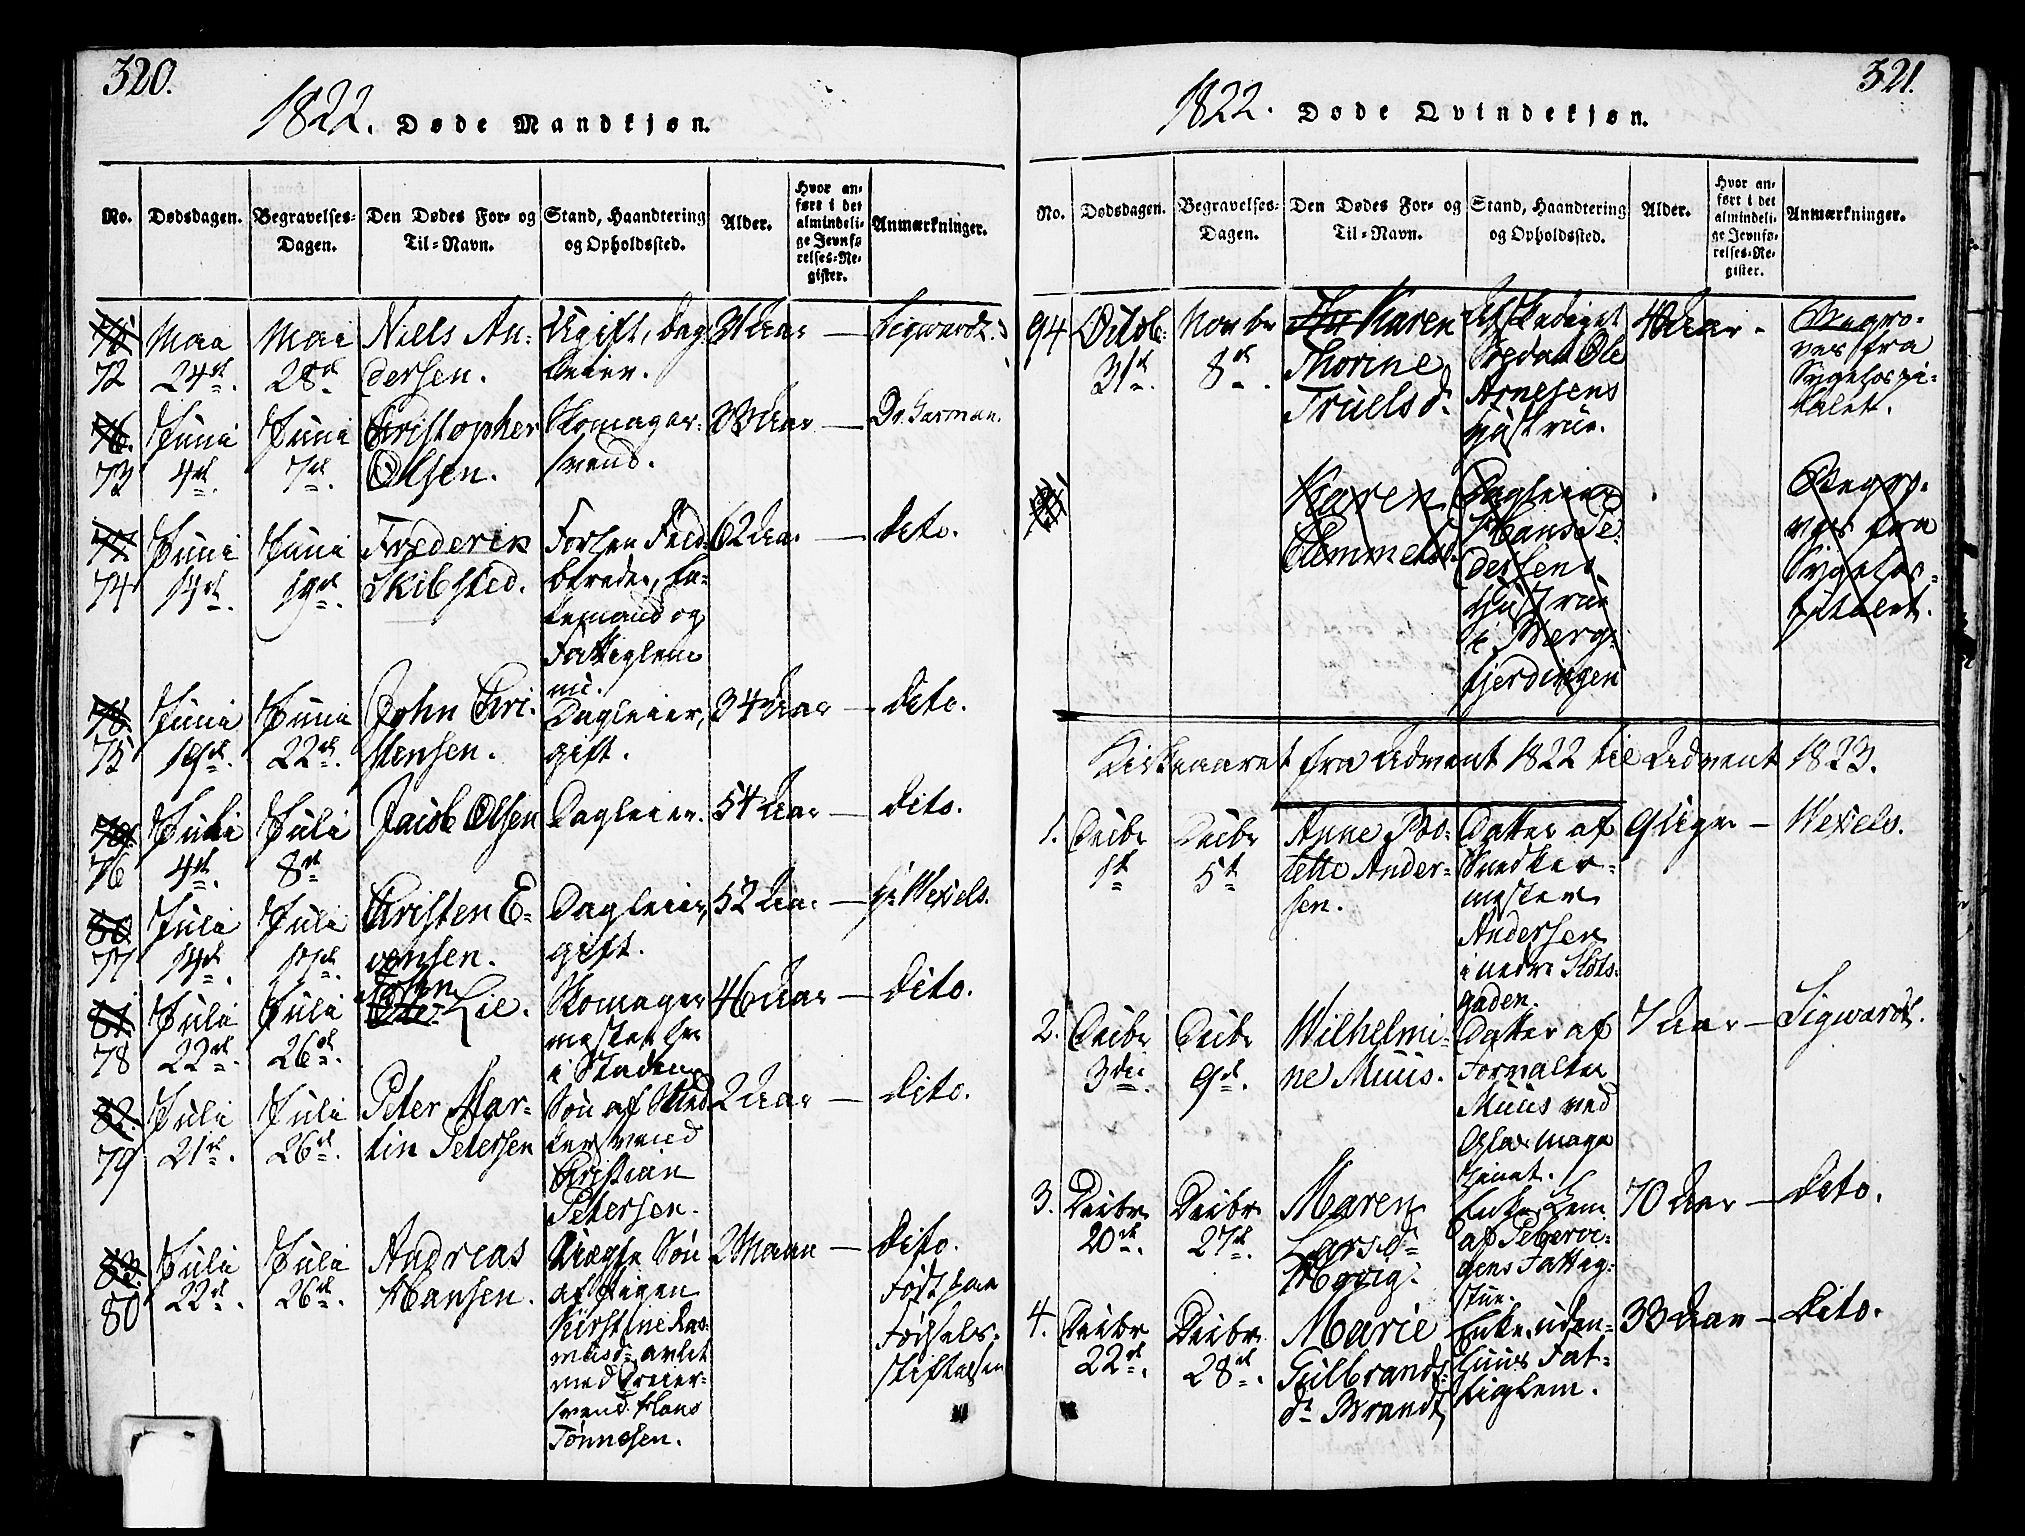 320.
1822. Døde Mandkjøn.
No.
Dødsdagen.
Begravelses-
Dagen.
Den Dødes For- og
Til-Navn.
Stand, Haandtering
og Opholdssted.
Alder.
Hvor an-
ført i det
almindeli-
ge Jevnfø-
relses-Re-
gister.
Anmærkninger.
72
Mai
24de.
Mai
28de
Niels An-
dersen.
Ugift, Dag-
leier.
31 Aar
Sigwardt.
76.
73
Juni
4de.
Juni
7de.
Christopher
Olsen.
Skomager-
svend.
Aar
Dr. Garman.
77.
74
Juni
14de.
Juni
19de.
Frederik
Skibsted.
62 Aar
Dito.
Fattiglem
78.
75
Juni
19de.
Juni
22de.
John Chri-
stensen.
Dagleier,
gift.
34 Aar
Dito.
79.
76
Juli
4de.
Juli
8de
Jacob Olsen
Dagleier.
54 Aar
Dito.
80
77
Juli
14de.
Juli
17de.
Christen E-
vensen.
Dagleier,
gift.
52 Aar
Hr Wexels.
81.
78
Juli
22de.
Juli
26de.
Lie.
Skomager
mester her
i Staden
46 Aar
Dito.
82.
79
Juli
21de.
Juli
26de.
Peter Mar-
tin Petersen
Søn af Sned
kersvend
Christian
Petersen.
2 Aar
Dito.
83.
80
Juli
22de.
Juli
26de.
Andreas
Hansen.
Uægte Søn
af Pigen
Kirstine Ras-
musd: avlet
med Dreier-
svend Hans
Tønnesen.
2 Maan
Dito.
Født paa
Fødsels-
stiftelsen
321.
1822. Døde Qvindekjøn.
No.
Dødsdagen.
Begravelses-
Dagen.
Den Dødes For- og
Til-Navn.
Stand, Haandtering
og Opholdssted.
Alder.
Hvor an-
ført i det
almindeli-
ge Jevnfø-
relses-Re-
gister.
Anmærkninger.
94
Octob:
31de.
Novbr
8de.
Karen
Thorine
Truelsd.
Afskediget
Soldat Ole
Arnesens
Hustrue.
40 Aar
Begra-
ves fra
Sygehospi-
talet.
Karen
Clemmetsd.
Dagleier
Hans Pe-
dersens
Hustrue
i Berg-
fjerdingen
Begra-
ves fra
Sygehos-
pitalet.
Kirkeaaret fra Advent 1822 til Advent 1823.
1.
Decbr
1st
Decbr
5t
Anne Bo-
lette Ander-
sen.
Datter af
Snedker-
mester
Andersen
i nedre Slots-
gaden.
9 Uger
Wexels.
2.
Decbr
3die
Decbr
9de.
Wilhelmi-
ne Muus.
Datter af
Forvalter
Muus ved
Glasmaga
zinet.
7 Aar
Sigwardt.
3.
Decbr
20de.
Decbr
27de.
Maren
Larsd:
Enke, Lem
af Pebervi-
gens Fattig-
stue.
70 Aar
Dito.
4.
Decbr
22de.
Decbr
28de.
Marie
Gulbrands-
dr Brandt,
Enke, uden-
huus Fat-
tiglem.
33 Aar
Dito.